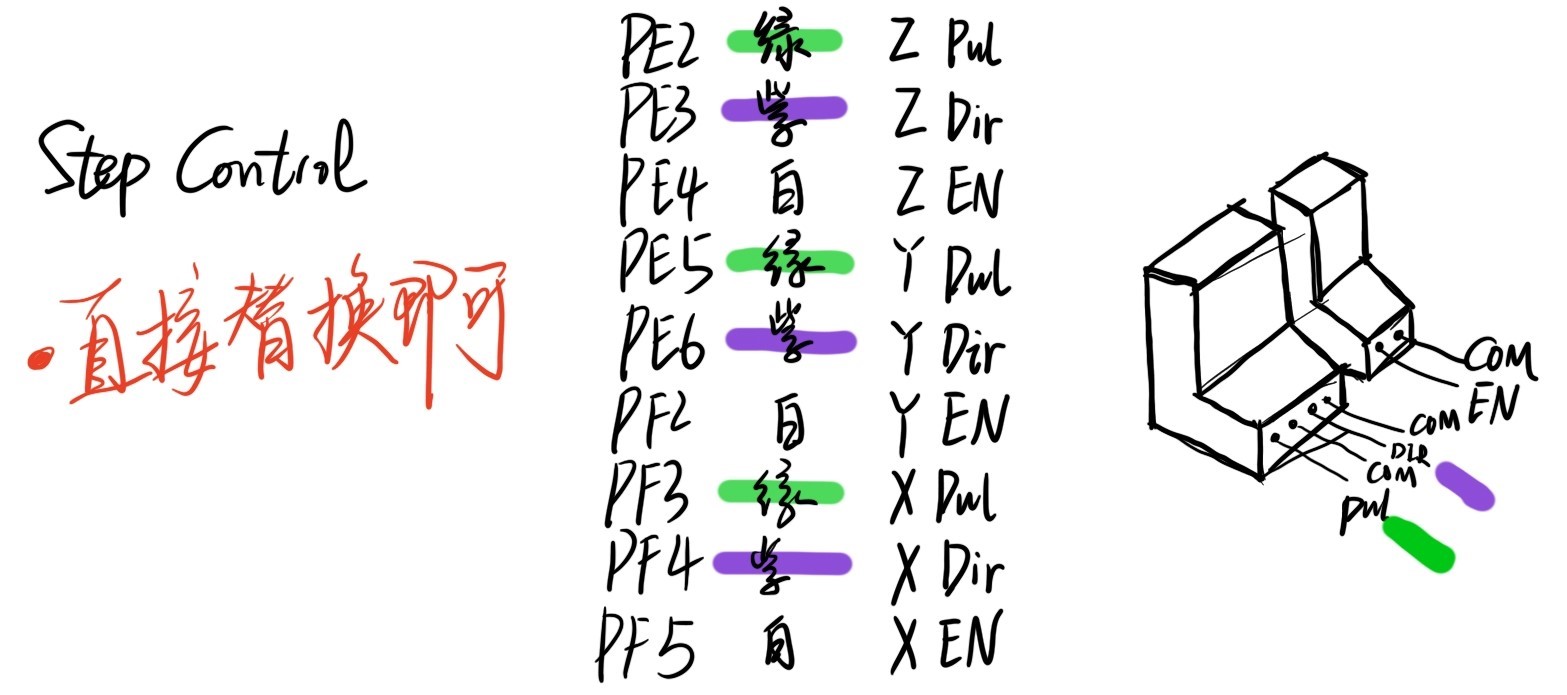 Step Control
• 直接替换即可
PE2 绿 Z Pul
PE3 紫 Z Dir
PE4 白 Z EN
PE5 绿 Y Pul
PE6 紫 Y Dir
PF2 白 Y EN
PF3 绿 X Pul
PF4 紫 X Dir
PF5 白 X EN
COM
EN
COM
DIR
COM
Pul